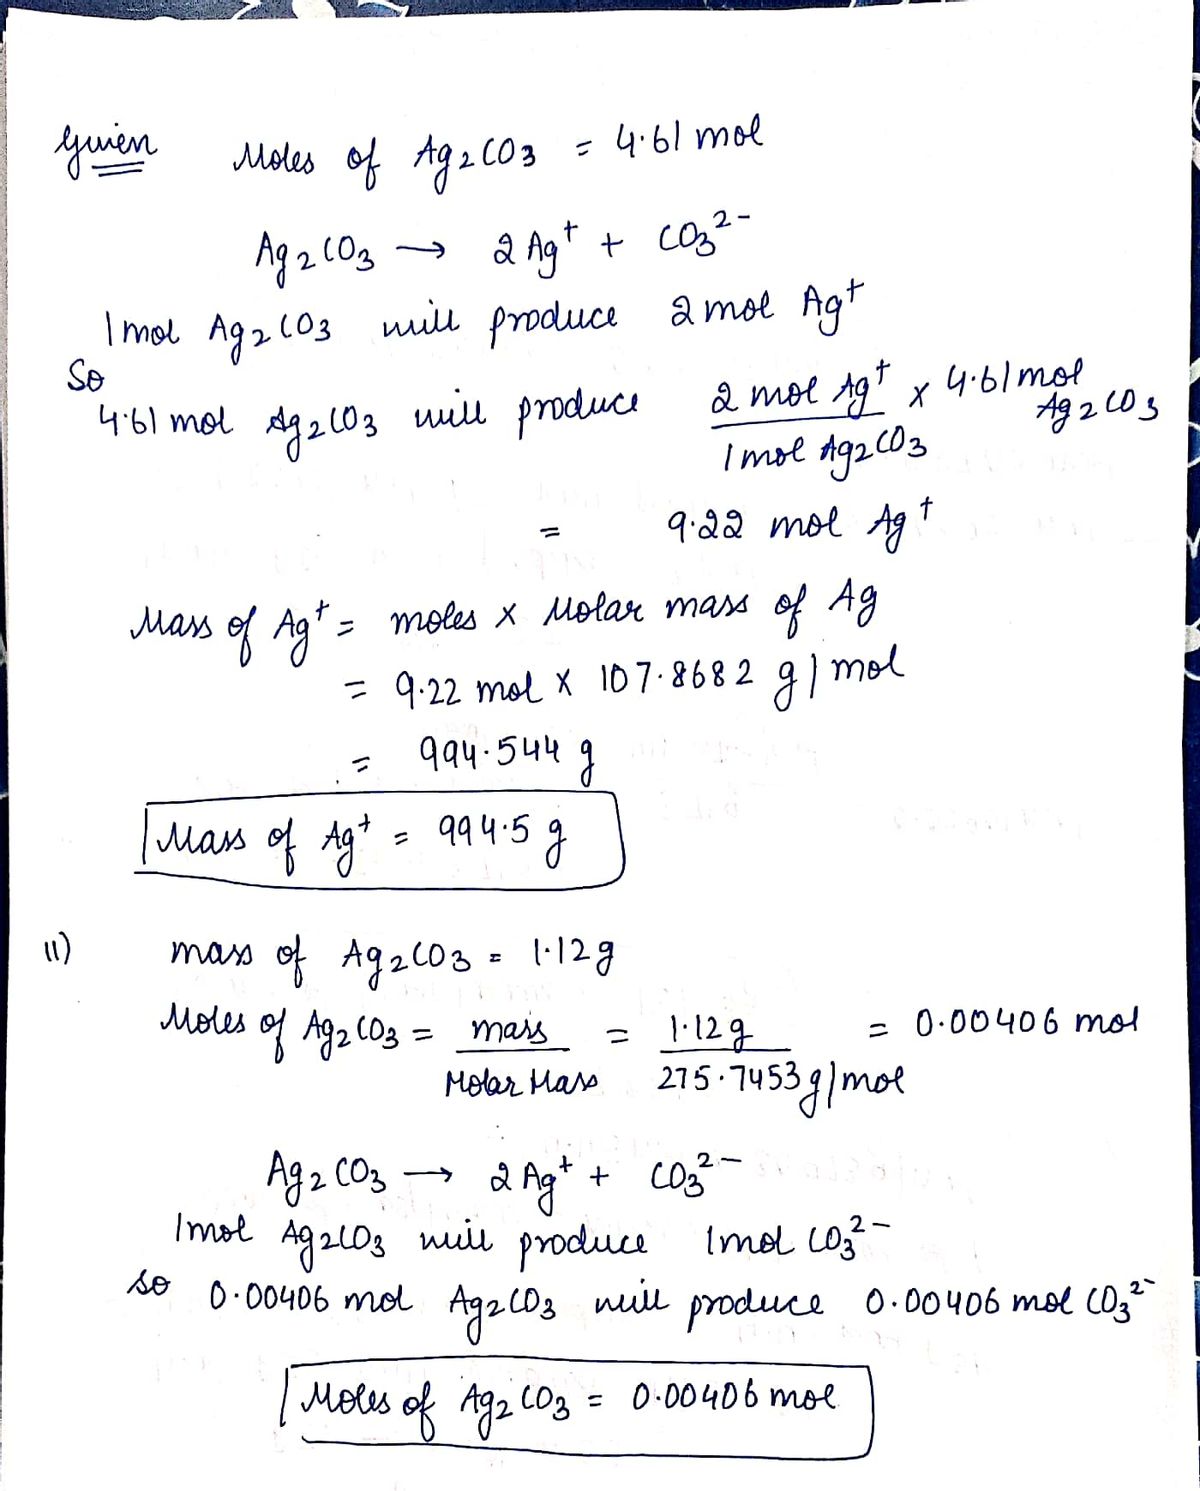 Given Moles of Ag2CO3 = 4.61 mol
Ag2CO3 → 2Ag⁺ + CO3²⁻
1 mol Ag2CO3 will produce 2 mol Ag⁺
So
4.61 mol Ag2CO3 will produce 2 mol Ag⁺ / 1 mol Ag2CO3 x 4.61 mol Ag2CO3
= 9.22 mol Ag⁺
Mass of Ag⁺ = moles x Molar mass of Ag
= 9.22 mol x 107.8682 g/mol
= 994.544 g
Mass of Ag⁺ = 994.5 g
11) mass of Ag2CO3 = 1.12g
Moles of Ag2CO3 = mass / Molar Mass = 1.12g / 275.7453 g/mol = 0.00406 mol
Ag2CO3 → 2Ag⁺ + CO3²⁻
1 mol Ag2CO3 will produce 1 mol CO3²⁻
so 0.00406 mol Ag2CO3 will produce 0.00406 mol CO3²⁻
Moles of Ag2CO3 = 0.00406 mol